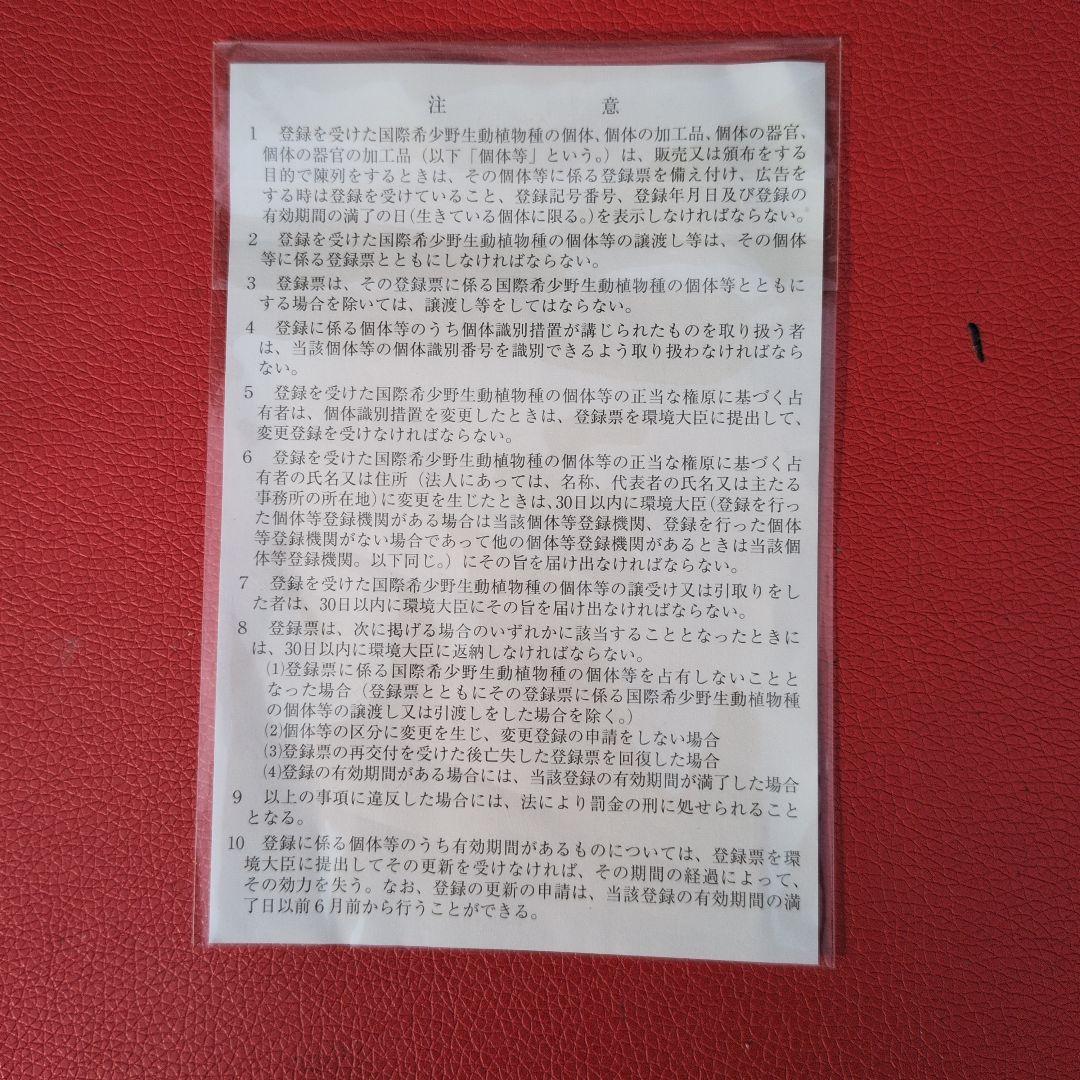 注　意
1　登録を受けた国際希少野生動植物種の個体、個体の加工品、個体の器官、
個体の器官の加工品（以下「個体等」という。）は、販売又は頒布をする
目的で陳列をするときは、その個体等に係る登録票を備え付け、広告を
する時は登録を受けていること、登録記号番号、登録年月日及び登録の
有効期間の満了の日(生きている個体に限る。)を表示しなければならない。
2　登録を受けた国際希少野生動植物種の個体等の譲渡し等は、その個体
等に係る登録票とともにしなければならない。
3　登録票は、その登録票に係る国際希少野生動植物種の個体等とともに
する場合を除いては、譲渡し等をしてはならない。
4　登録に係る個体等のうち個体識別措置が講じられたものを取り扱う者
は、当該個体等の個体識別番号を識別できるよう取り扱わなければなら
ない。
5　登録を受けた国際希少野生動植物種の個体等の正当な権原に基づく占
有者は、個体識別措置を変更したときは、登録票を環境大臣に提出して、
変更登録を受けなければならない。
6　登録を受けた国際希少野生動植物種の個体等の正当な権原に基づく占
有者の氏名又は住所（法人にあっては、名称、代表者の氏名又は主たる
事務所の所在地)に変更を生じたときは、30日以内に環境大臣（登録を行っ
た個体等登録機関がある場合は当該個体等登録機関、登録を行った個体
等登録機関がない場合であって他の個体等登録機関があるときは当該個
体等登録機関。以下同じ。）にその旨を届け出なければならない。
7　登録を受けた国際希少野生動植物種の個体等の譲受け又は引取りをし
た者は、30日以内に環境大臣にその旨を届け出なければならない。
8　登録票は、次に掲げる場合のいずれかに該当することとなったときに
は、30日以内に環境大臣に返納しなければならない。
(1)登録票に係る国際希少野生動植物種の個体等を占有しないことと
なった場合（登録票とともにその登録票に係る国際希少野生動植物種
の個体等の譲渡し又は引渡しをした場合を除く。）
(2)個体等の区分に変更を生じ、変更登録の申請をしない場合
(3)登録票の再交付を受けた後亡失した登録票を回復した場合
(4)登録の有効期間がある場合には、当該登録の有効期間が満了した場合
9　以上の事項に違反した場合には、法により罰金の刑に処せられること
となる。
10　登録に係る個体等のうち有効期間があるものについては、登録票を環
境大臣に提出してその更新を受けなければ、その期間の経過によって、
その効力を失う。なお、登録の更新の申請は、当該登録の有効期間の満
了日以前６月前から行うことができる。